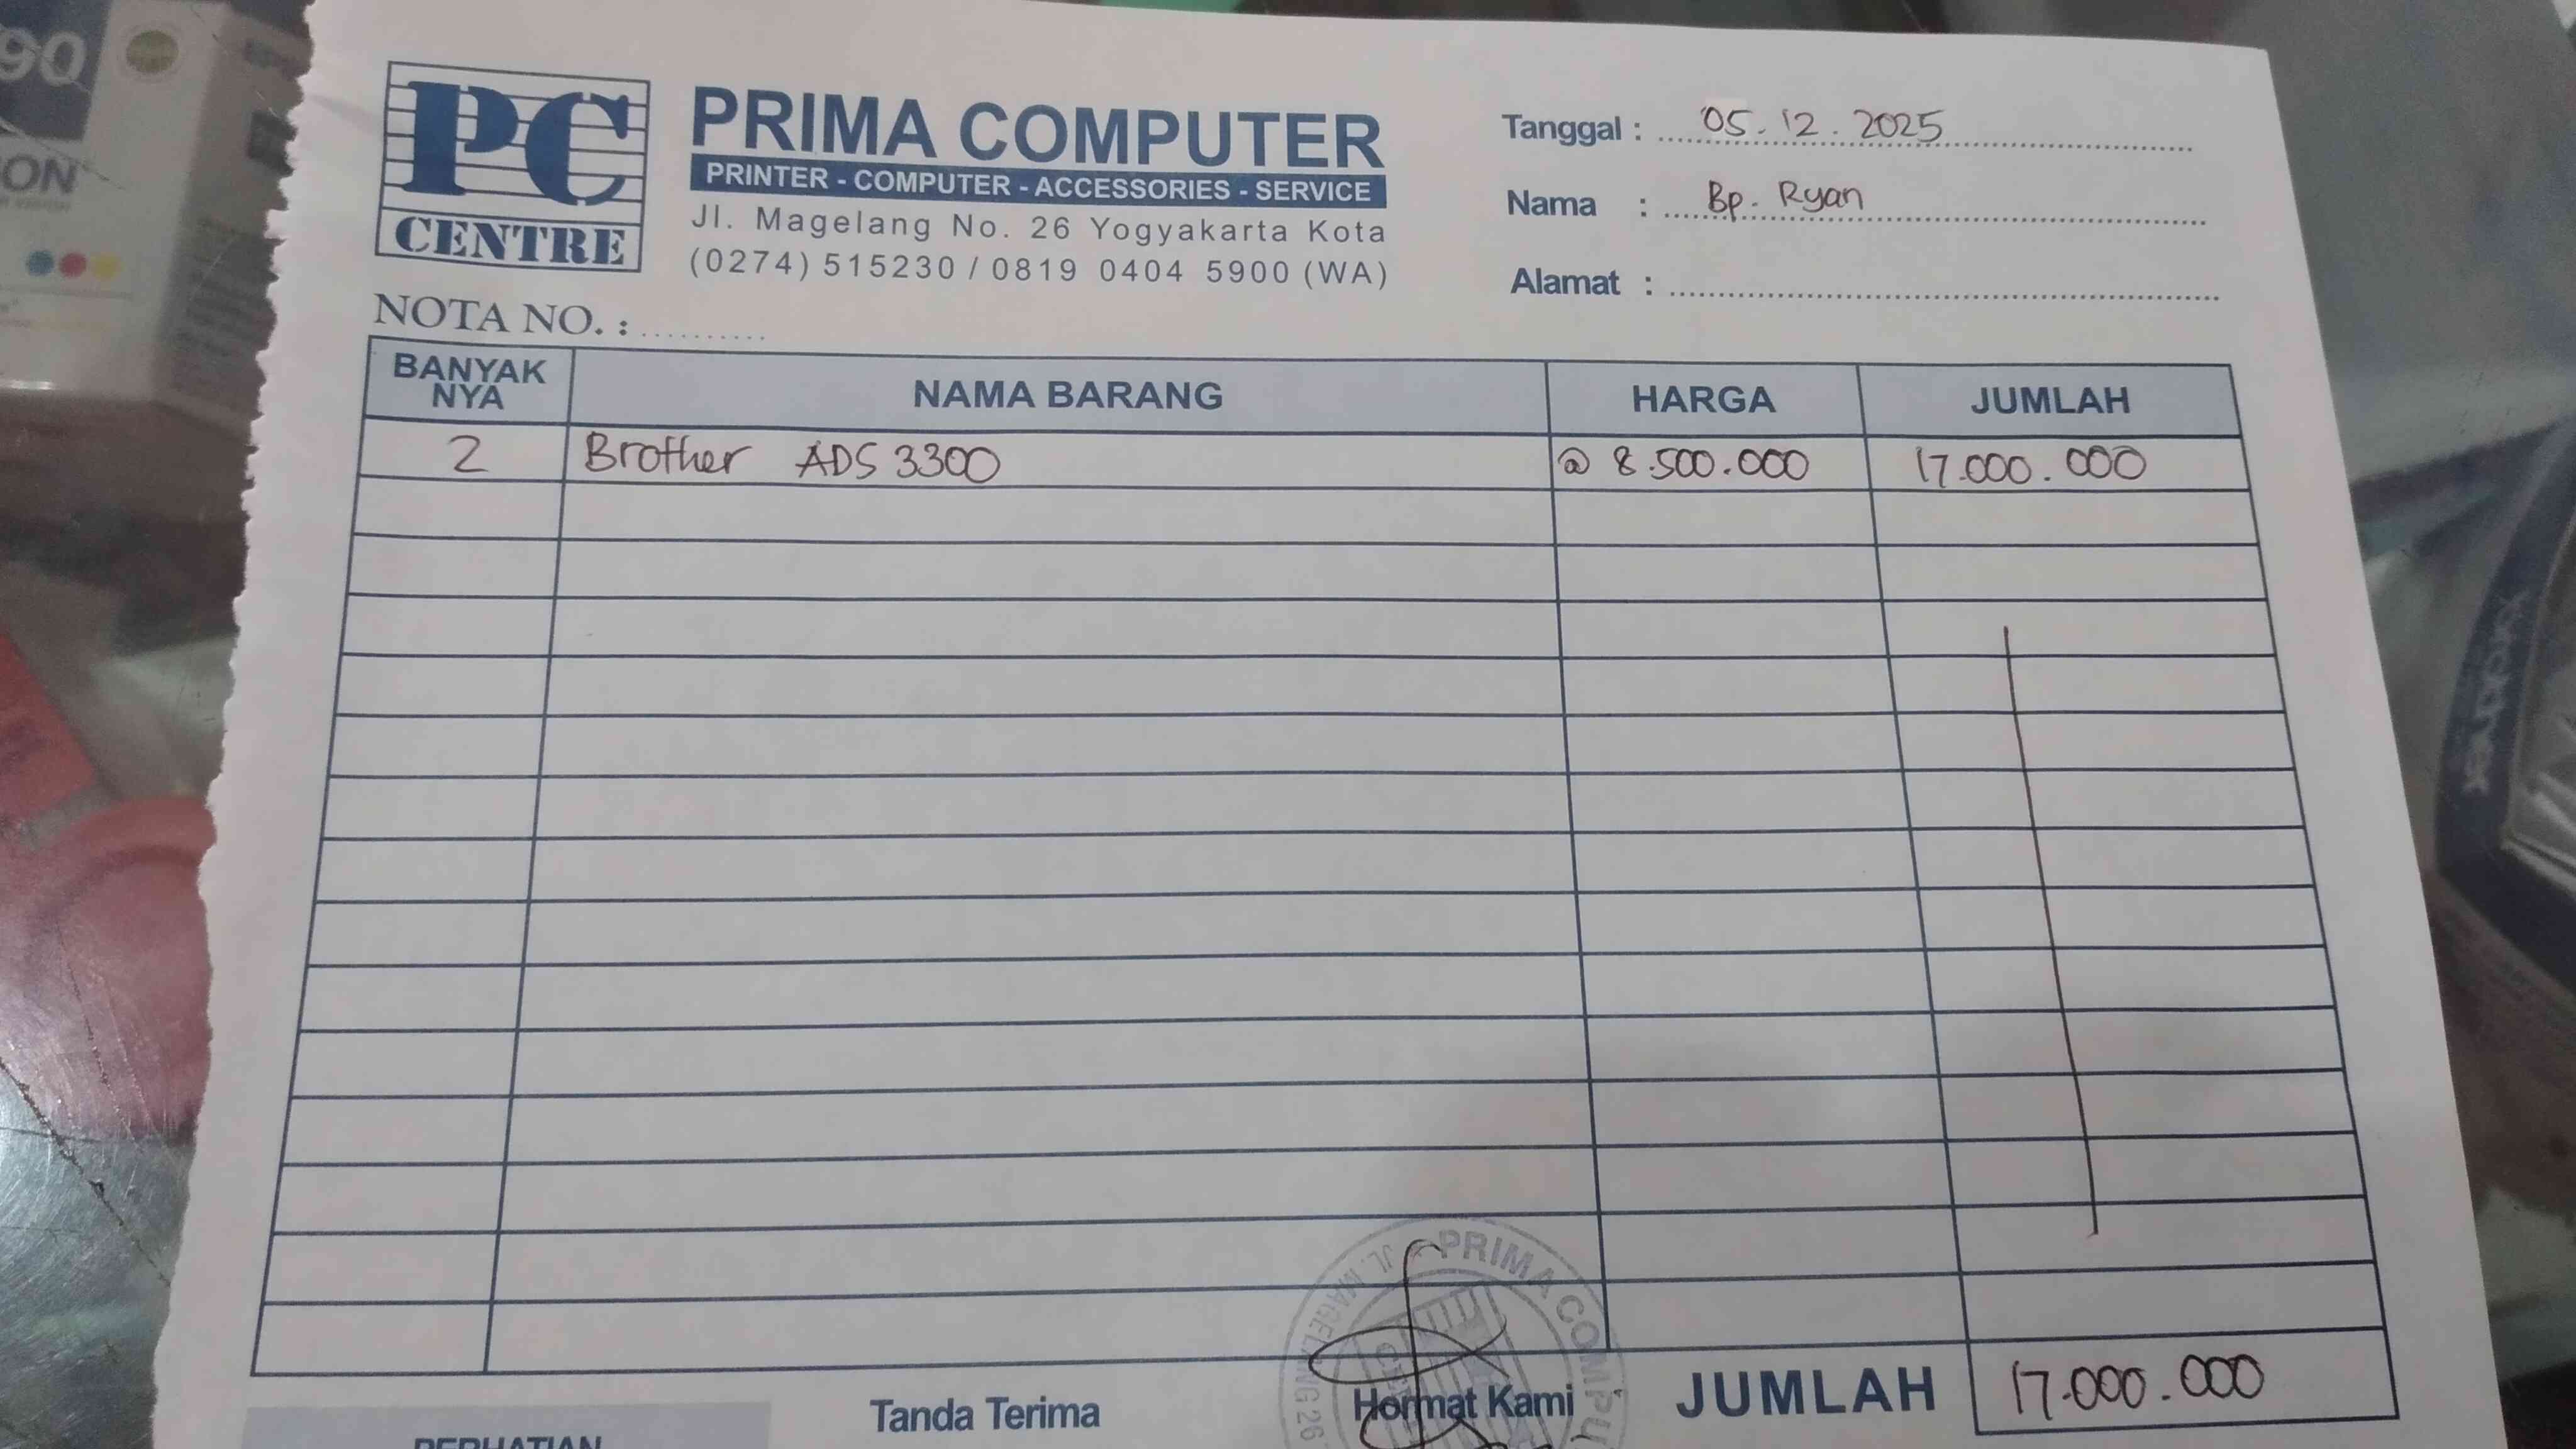 90
ON
PC
CENTRE
PRIMA COMPUTER
PRINTER - COMPUTER - ACCESSORIES - SERVICE
Jl. Magelang No. 26 Yogyakarta Kota
(0274) 515230 / 0819 0404 5900 (WA)
Tanggal : 05.12.2025
Nama : Bp. Ryan
Alamat :
NOTA NO. :
BANYAK NYA NAMA BARANG HARGA JUMLAH
2 Brother ADS 3300 @ 8.500.000 17.000.000
PRIMA COMPU
JL. MAGELANG 26
Tanda Terima
Hormat Kami
JUMLAH 17.000.000
PERHATIAN